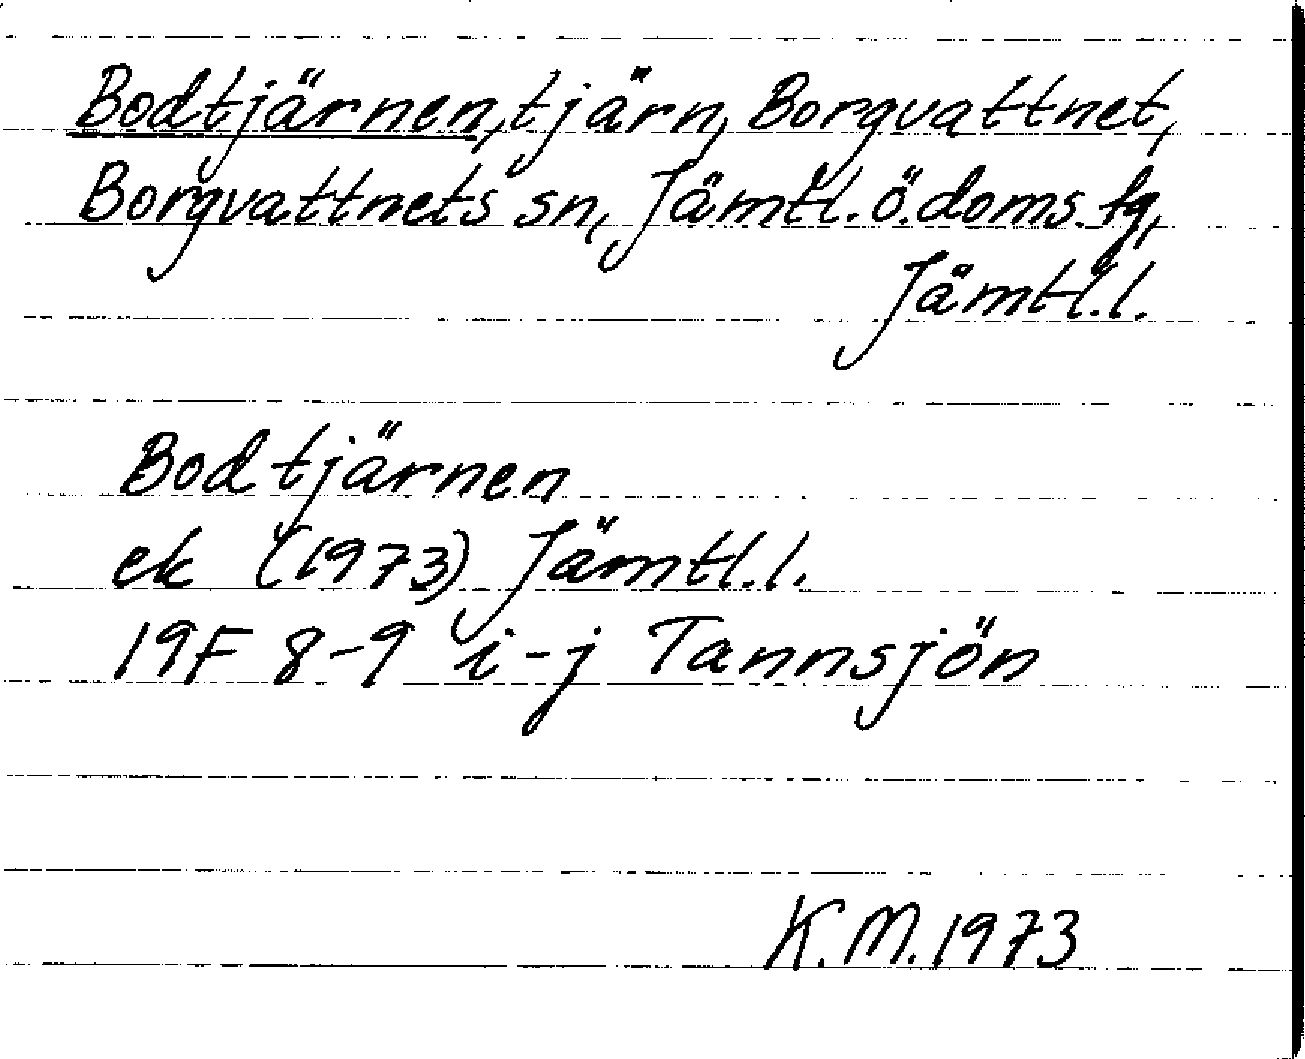 Bodtjärnen, tjärn, Borgvattnet,
Borgvattnets sn, Jämtl. ö. doms. tg,
Jämtl. l.
Bodtjärnen
ek (1973) Jämtl. l.
19F 8-9 i-j Tannsjön
K. M. 1973